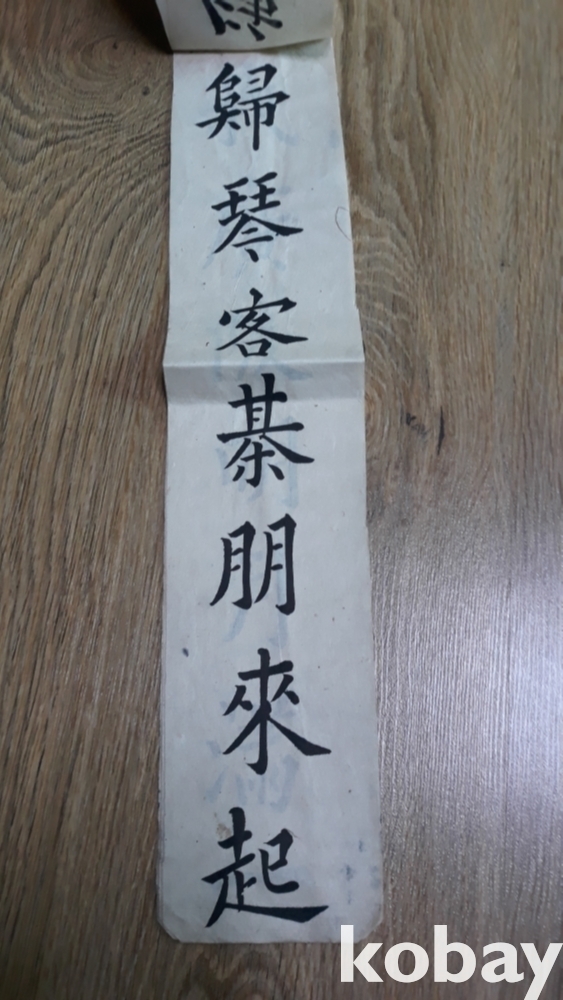 歸琴客棊朋來起
kobay